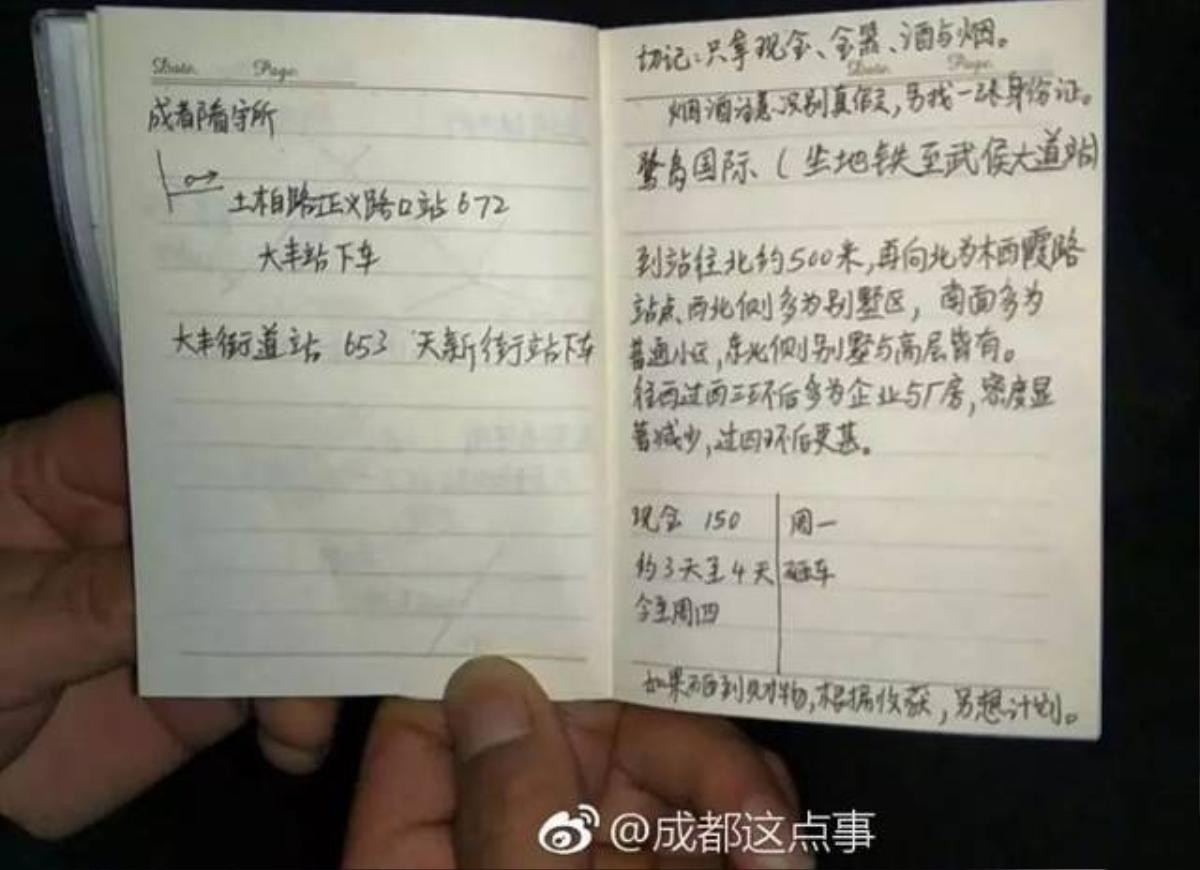 Date. Page.
成都看守所
土柏路正义路口站 672
大丰站下车
大丰街道站 653 天新街站下车
切记:只拿现金、金器、酒与烟。
Date. Page.
烟酒注意识别真假,另找一张身份证。
鹭岛国际(坐地铁至武侯大道站)
到站往北约500米,再向北为栖霞路
站点,西北侧多为别墅区,南面多为
普通小区,东北侧别墅与高层皆有。
往西过西三环后多为企业与厂房,密度显
著减少,过四环后更甚。
现金 150 周一
约3天至4天 砸车
今至周四
如果砸到财物,根据收获,另想计划。
@成都这点事